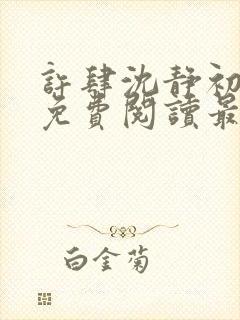 許肆沈靜初
免費閱讀最
白金菊